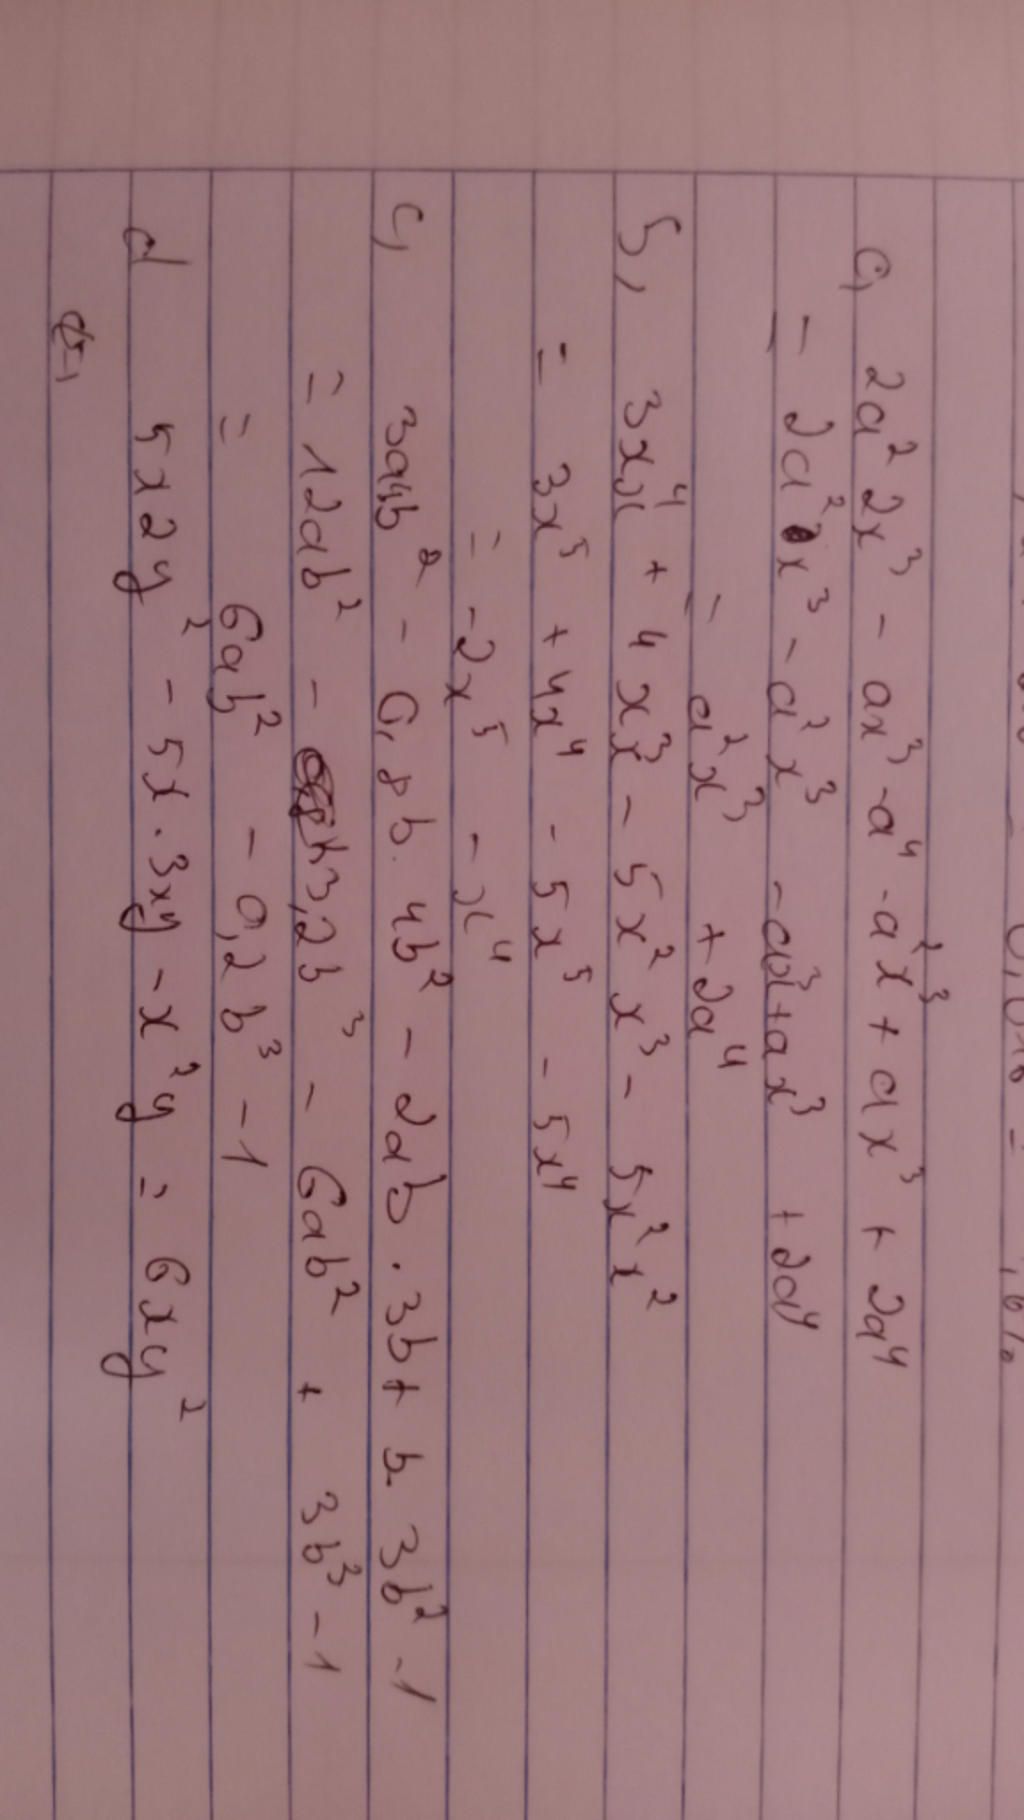 a, 2a² 2x³ - ax³ - a⁴ - a²x³ + ax³ + 2a⁴
= 2a² x³ - a²x³ - ax³ + ax³ + 2a⁴
= a²x³ + 2a⁴
b, 3x⁴x + 4xx³ - 5x²x³ - 5x²x²
= 3x⁵ + 4x⁴ - 5x⁵ - 5x⁴
= -2x⁵ - x⁴
c, 3a4b² - 0,8b. 4b² - 2ab . 3b + b. 3b² - 1
= 12ab² - 3,2b³ - 6ab² + 3b³ - 1
= 6ab² - 0,2b³ - 1
d 5x2y² - 5x . 3xy - x²y = 6xy²